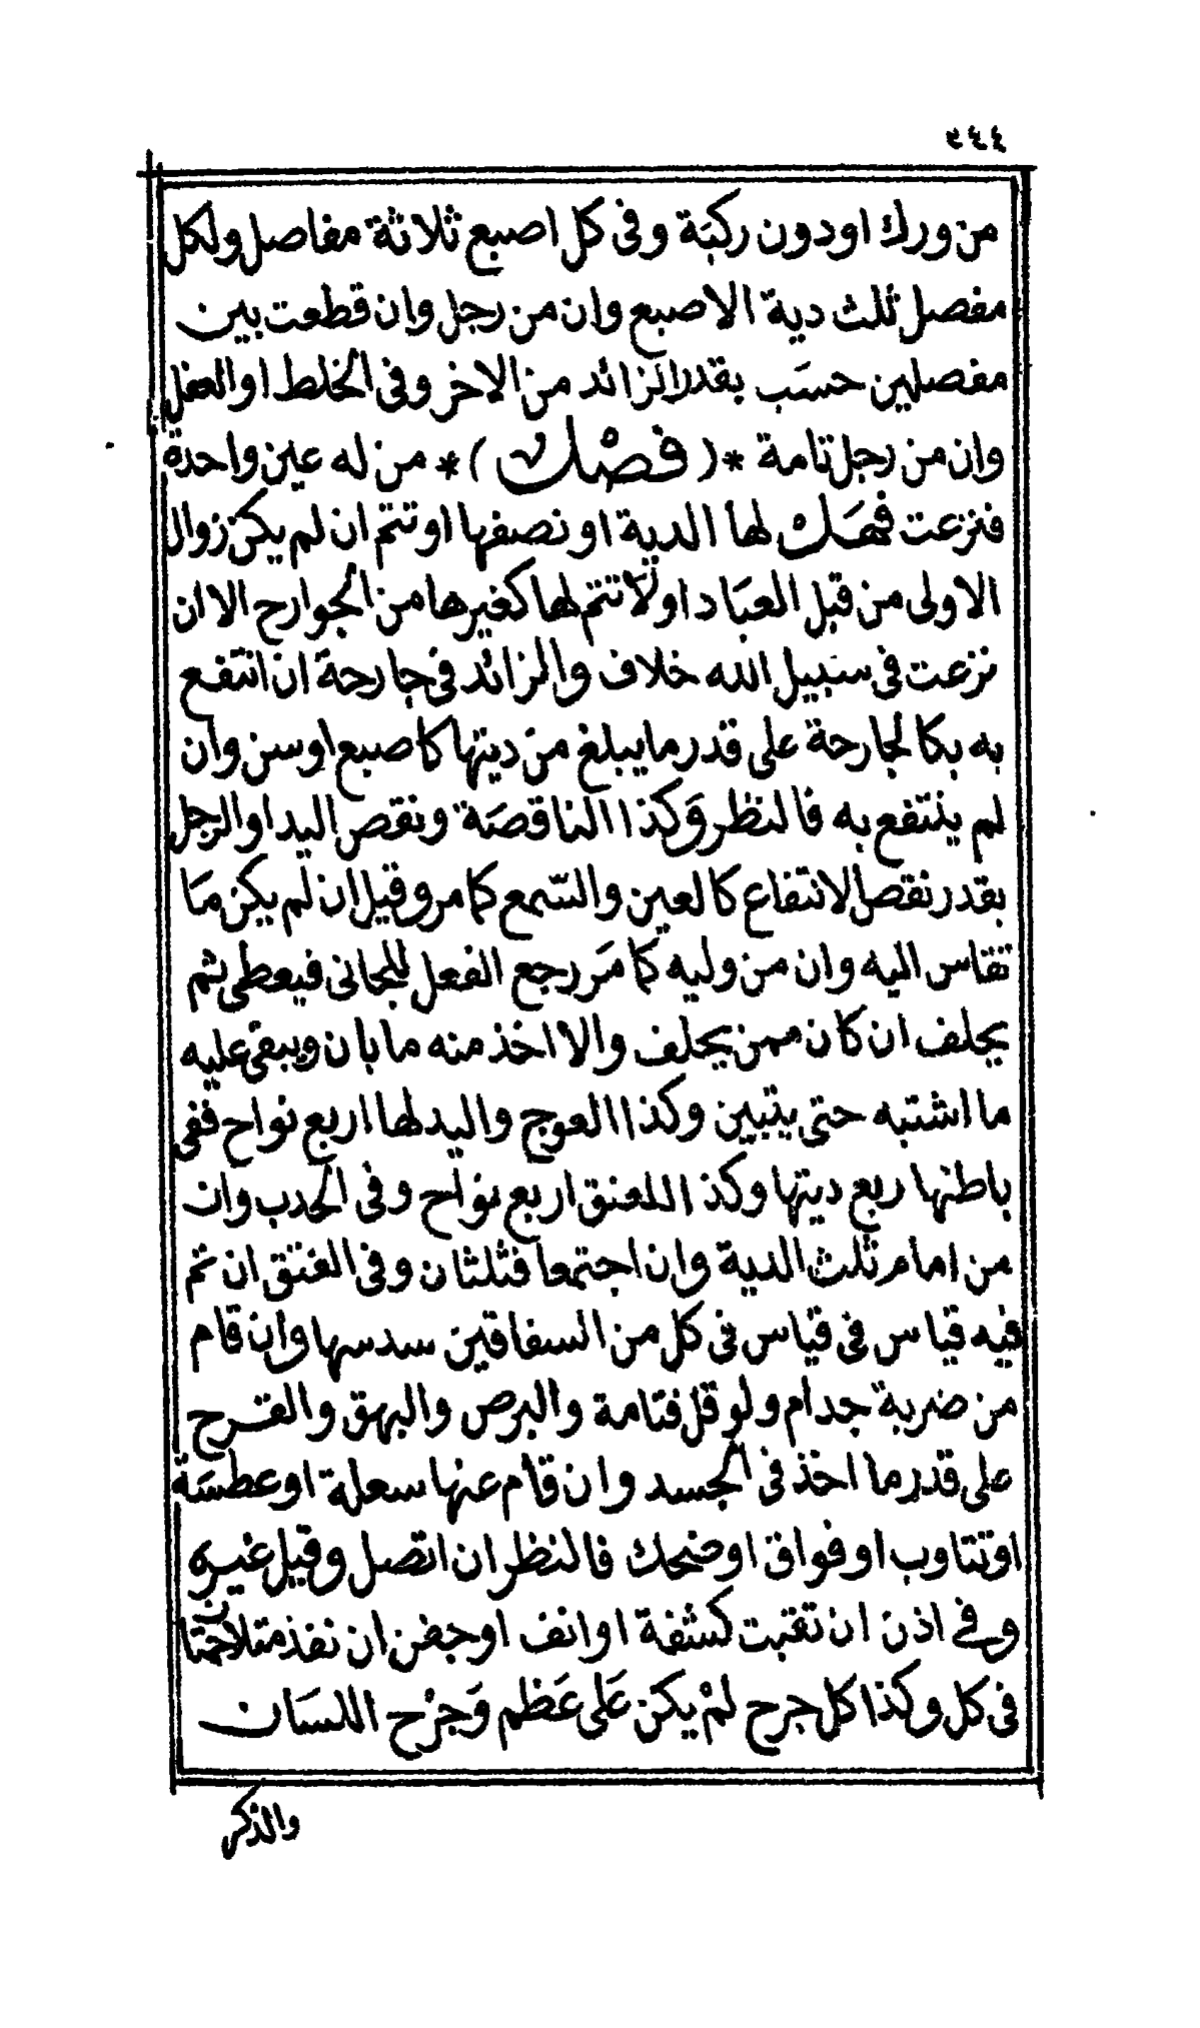 ٢٤٤
من ورك او دون ركبة وفى كل اصبع ثلاثة مفاصل ولكل
مفصل ثلث دية الاصبع وان من رجل وان قطعت بين
مفصلين حسب بقدر الزائد من الاخر وفى الخلط او العفل
وان من رجل تامة *( فصل )* من له عين واحدة
فنزعت فهل لها الدية او نصفها او تتم ان لم يكن زوال
الاولى من قبل العباد او لا تتم لها كغيرها من الجوارح الا ان
نزعت فى سبيل الله خلاف والزائد فى جارحة ان انتفع
به بكالجارحة على قدر ما يبلغ من ديتها كاصبع او سن وان
لم ينتفع به فالنظر وكذا الناقصة ونقص اليد او الرجل
بقدر نقص الانتفاع كالعين والسمع كما مر وقيل ان لم يكن ما
تقاس اليه وان من وليه كما مر رجع الفعل للجانى فيعطى ثم
يحلف ان كان ممن يحلف والا اخذ منه ما بان ويبقى عليه
ما اشتبه حتى يتبين وكذا العوج واليد لها اربع نواح ففى
باطنها ربع ديتها وكذا للعنق اربع نواح وفى الحدب وان
من امام ثلث الدية وان اجتمعا فثلثان وفى الفتق ان تم
فيه قياس فى قياس فى كل من السفاقين سدسها وان قام
من ضربة جدام ولو قل فتامة والبرص والبهق والقرح
على قدر ما اخذ فى الجسد وان قام عنها سعلة او عطسة
او تتاوب او فواق او ضحك فالنظر ان اتصل وقيل غيره
وفى اذن ان ثقبت كشفة او انف او جفن ان نفذ متلاحمتان
فى كل وكذا كل جرح لم يكن على عظم وجرح اللسان
والذكر